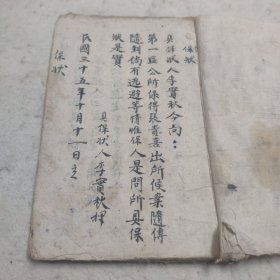 保狀
具保狀人李實秋今向:
第一區公所保得張喜喜出所候案隨傳
隨到倘有逃避等情惟保人是問所具保
狀是實
具保狀人李實秋押
民國三十五年十月十一日立
保狀